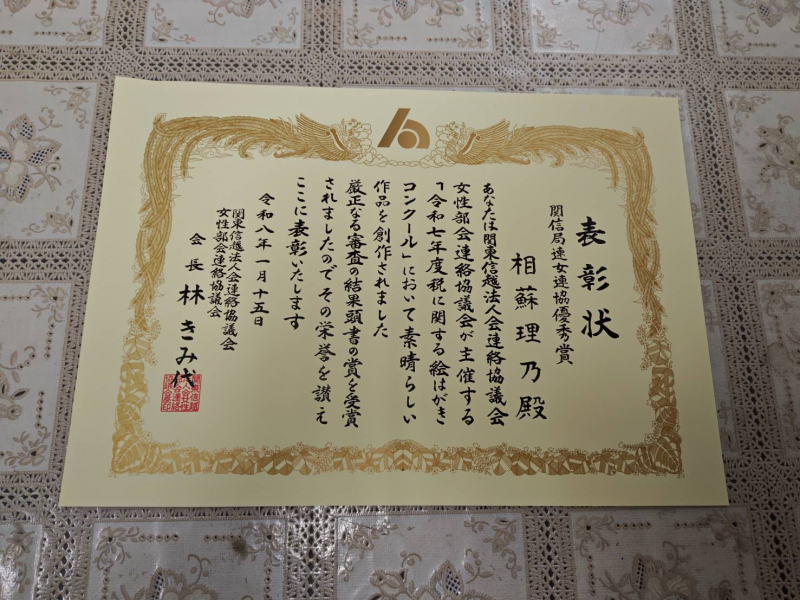 表彰状
関信局連女連協優秀賞
相蘇理乃殿
あなたは関東信越法人会連絡協議会
女性部会連絡協議会が主催する
「令和七年度税に関する絵はがき
コンクール」において素晴らしい
作品を創作されました
厳正なる審査の結果頭書の賞を受賞
されましたのでその栄誉を讃え
ここに表彰いたします
令和八年一月十五日
関東信越法人会連絡協議会
女性部会連絡協議会
会長 林きみ代